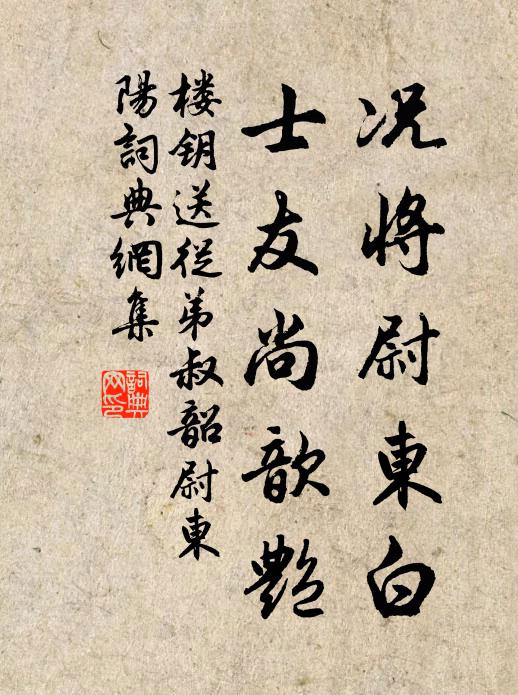 况将尉東白
士友尚歆艷
楼钥送從弟叔韶尉東
陽詞典網集
詞典网印